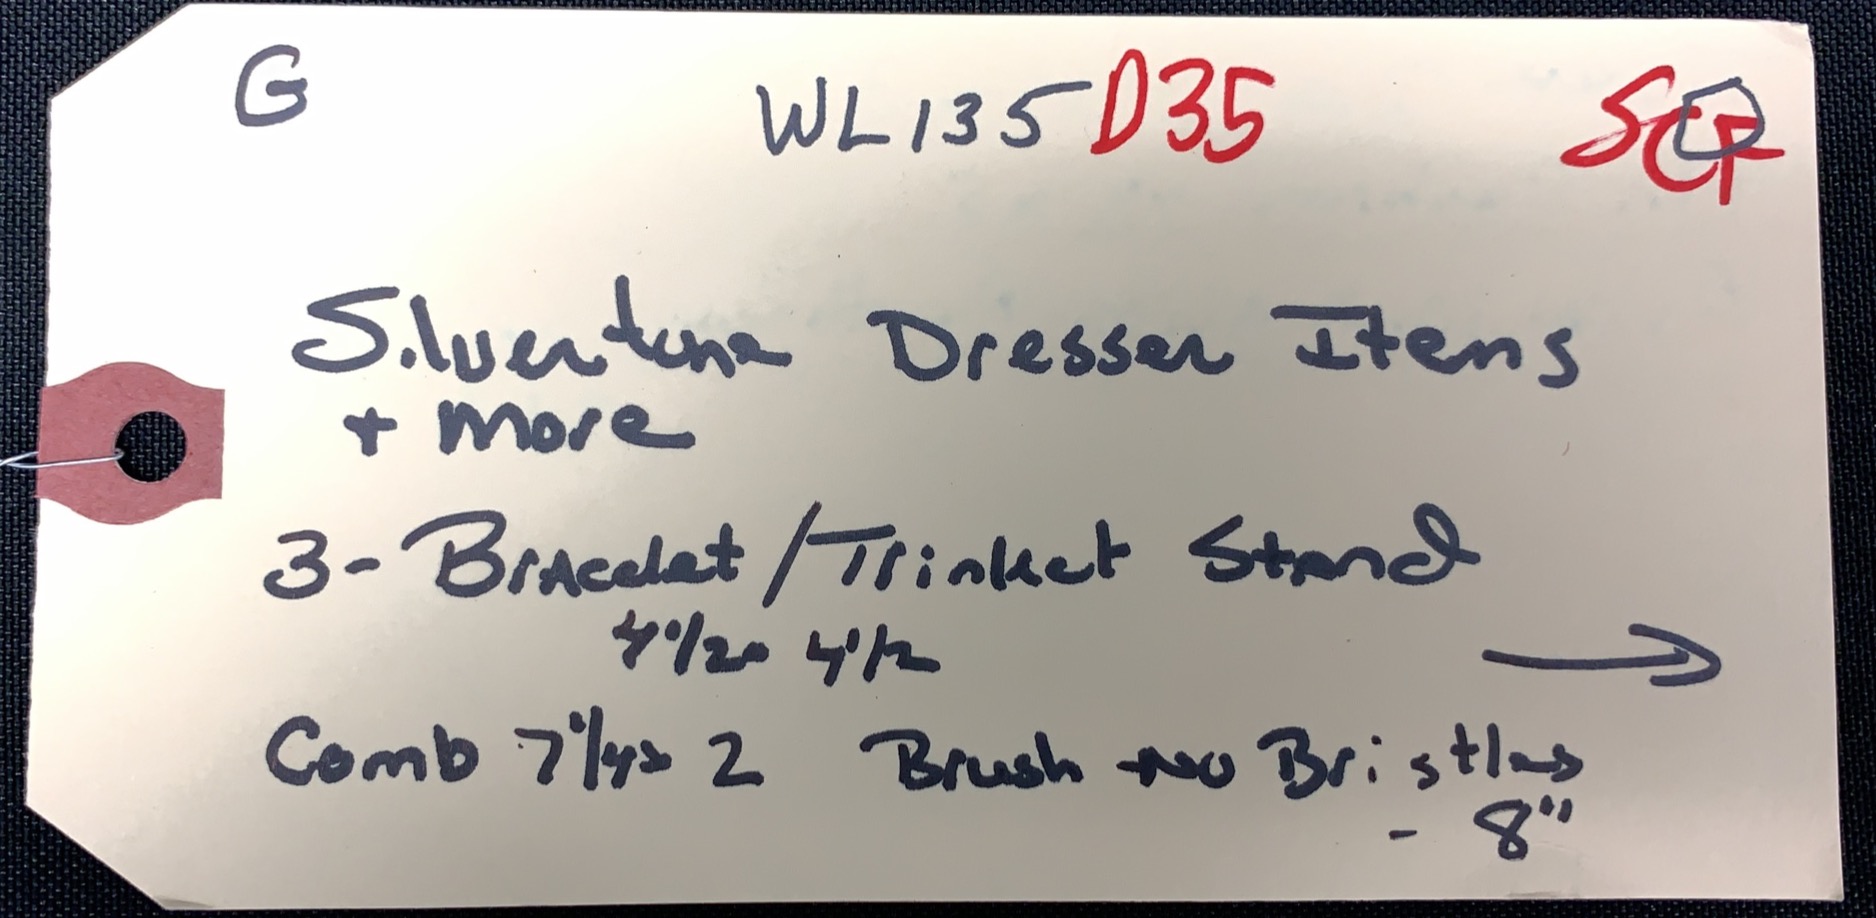 G WL135 D35 SCF
Silvertone Dresser Items
+ More
3- Bracelet / Trinket Stand
4 1/2 x 4 1/2 →
Comb 7 1/4 x 2 Brush - No Bristles
- 8"